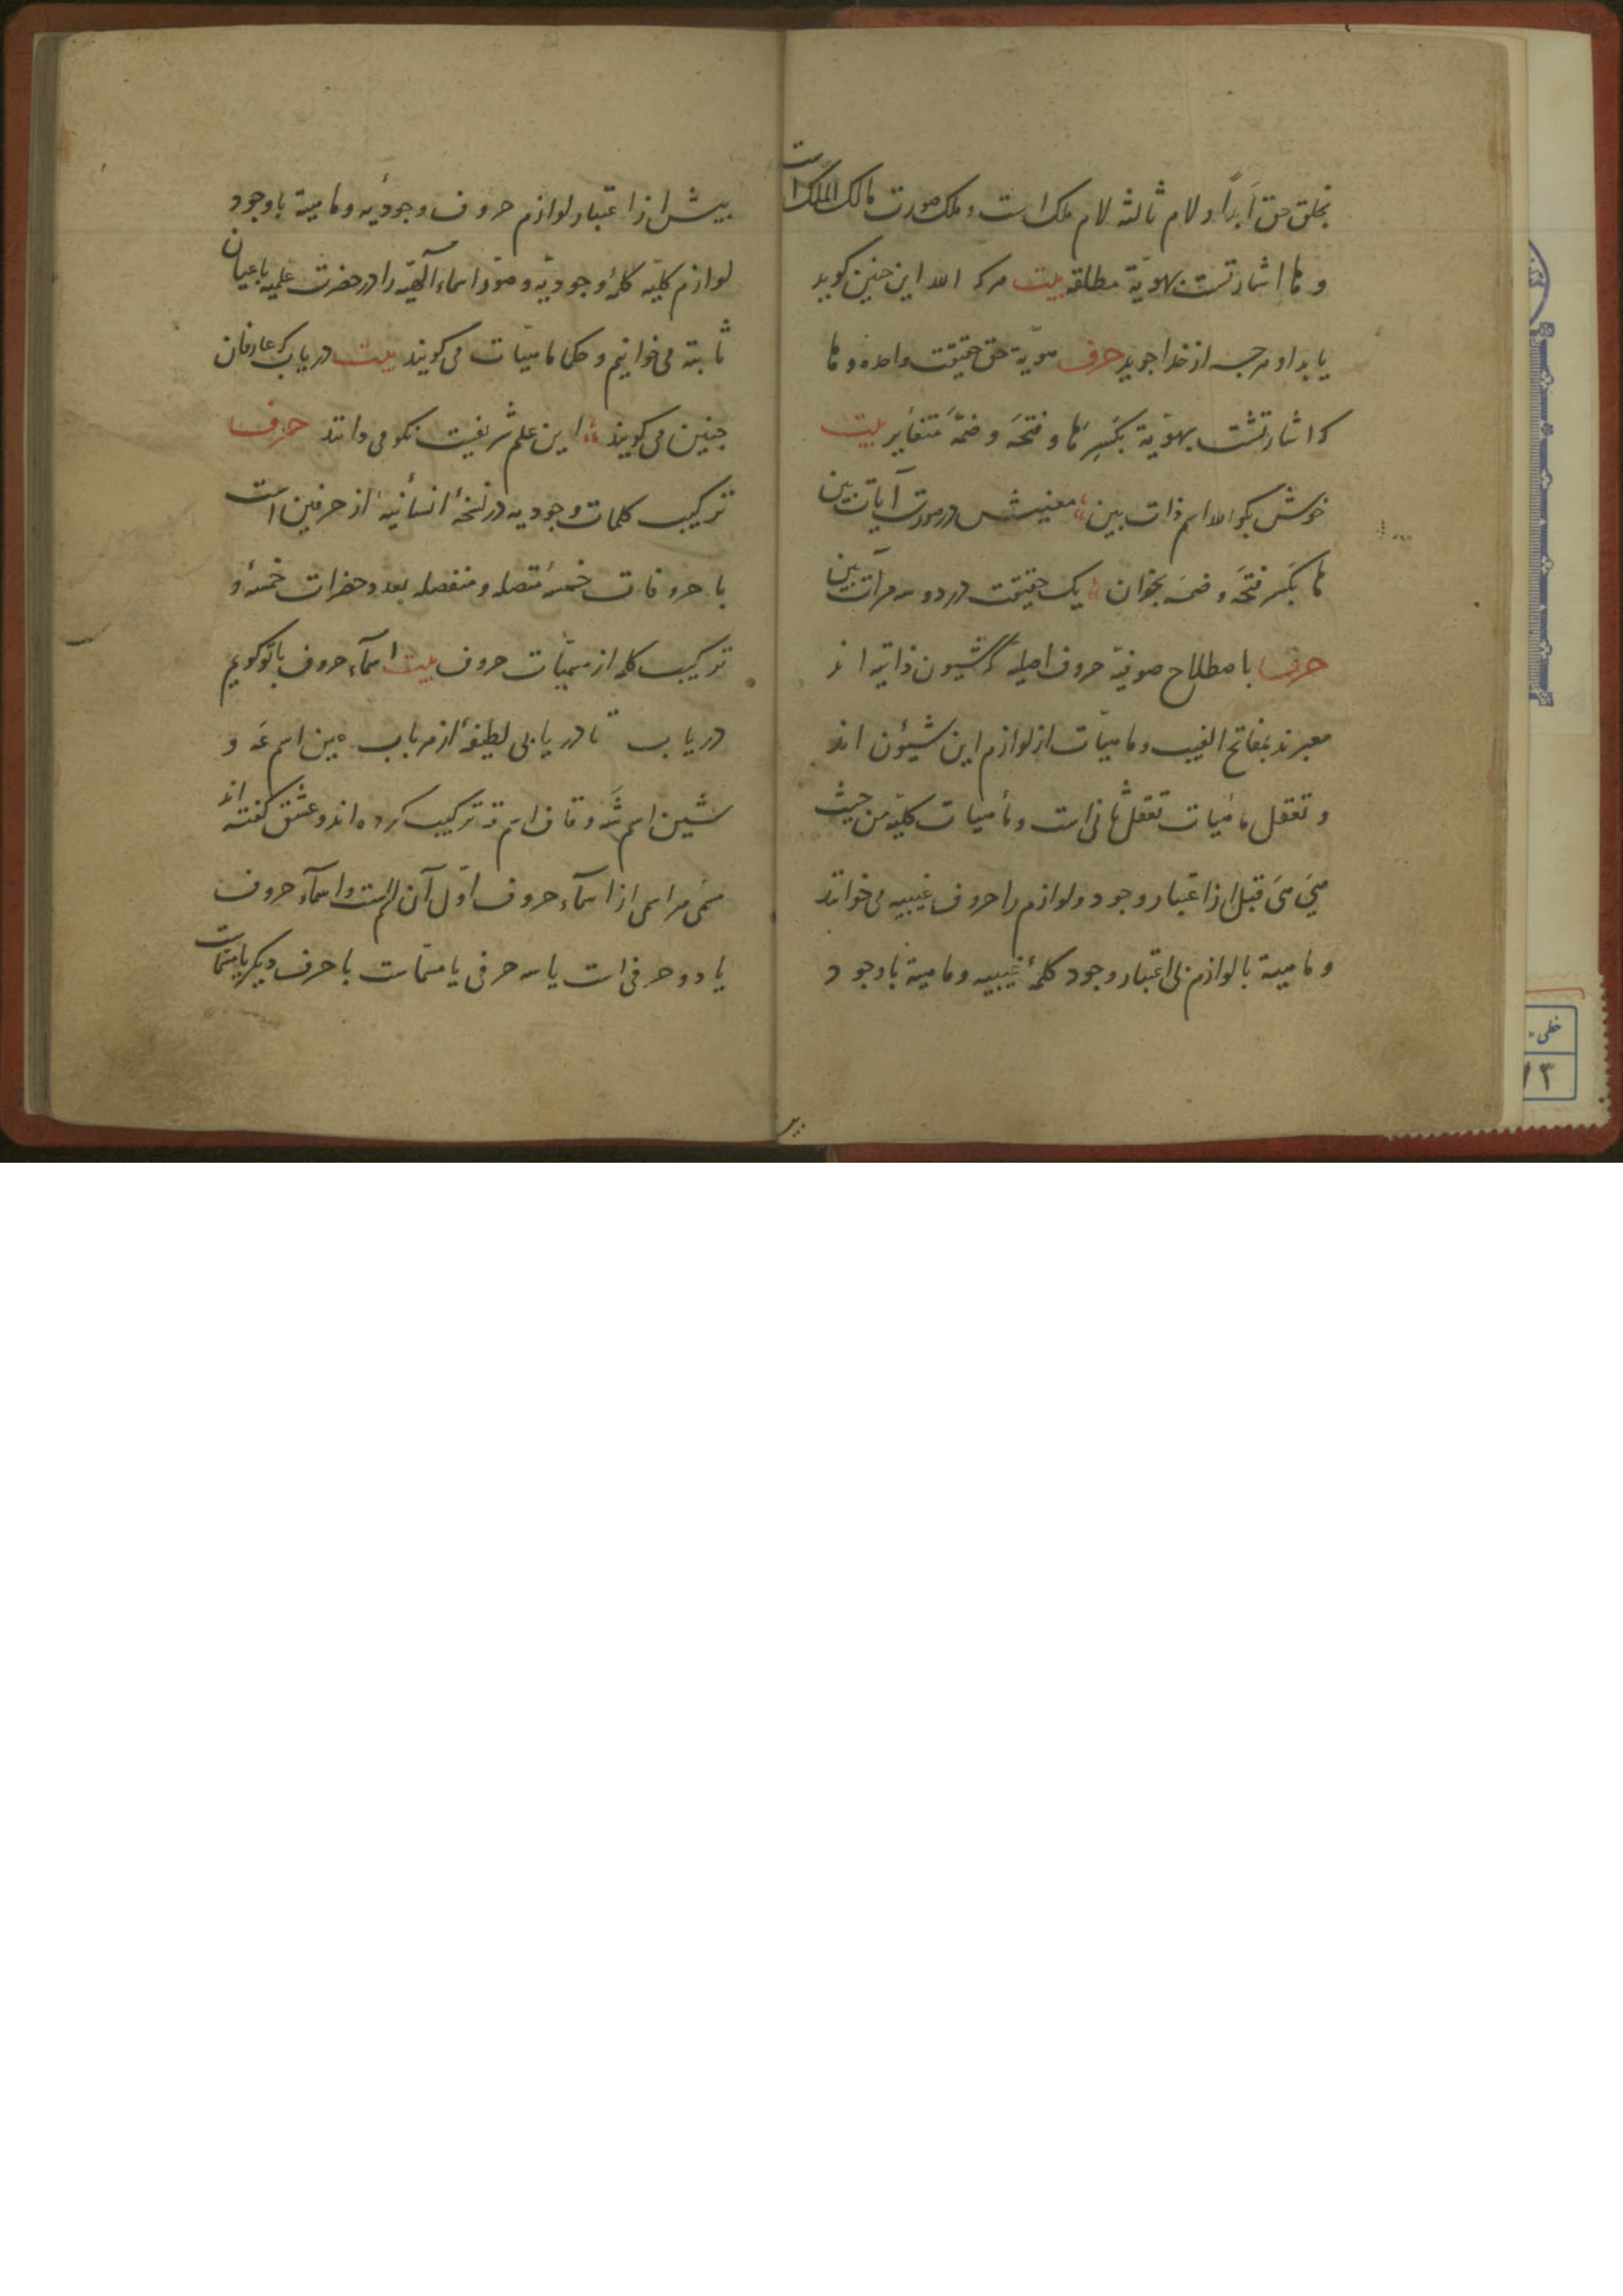 بخلق حق ابداً و لام ثالثه لام ملک است و ملک صورت مالک الملک است
و ها اشارتست بهویّة مطلقه بیت هرکه الله این چنین کوید
یابد او هرچه از خدا جوید حرف هویة حق حقیقت واحده و ها
که اشارتست بهویّة بکسر ها و فتحه و ضمّه متغایر بیت
خوش بکو الله اسم ذات ببین معنیش در صورت آیات ببین
ها بکسر فتحه و ضمه بخوان یک حقیقت در دو سه مرآت ببین
حرف باصطلاح صوفیّه حروف اصلیه که شیون ذاتیه اند
معبرند بمفاتح الغیب و ماهیّات از لوازم این شیؤن اند
و تعقل ماهیات تعقل ثانی است و ماهیات کلیّه من حیث
هی هی قبل از اعتبار وجود و لوازم را حروف غیبیه می خوانند
و ماهیة با لوازم بی اعتبار وجود کلمهٔ غیبیه و ماهیة با وجود
پیش از اعتبار لوازم حروف وجودیه و ماهیة با وجود
لوازم کلیّه کلمهٔ وجودیّه و صور اسماء آلهیّه را در حضرت علمیه باعیان
ثابته می خوانیم و حکما ماهیّات می کویند بیت دریاب که عارفان
چنین می کویند این علم شریفیست نکو می دانند حرف
ترکیب کلمات وجودیه در نسخهٔ انسانیه از حرفین است
با حروفات خمسهٔ متصله و منفصله بعدد حضرات خمسهٔ و
ترکیب کلمه از مسمیّات حروف بیت اسمآء حروف با تو کویم
دریاب تا دریابی لطیفهٔ از هر باب عین اسم عَه و
شین اسم شَه و قاف اسم قه ترکیب کرده اند و عشق کفته اند
مسمی هر اسمی از اسمآء حروف اوّل آن اسم است و اسمآء حروف
یا دو حرفی است یا سه حرفی یا مسمّاست با حرف دیکر یا مسمّاست
خطی